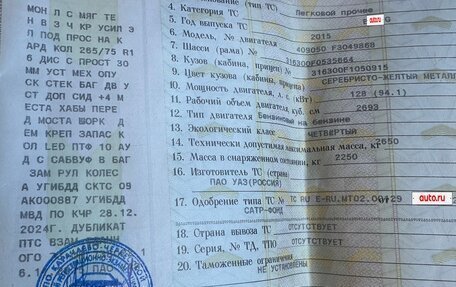 МОН Л С МЯГ ТЕ
Н В З Ч КР УСИЛ Э
Л ПОД ПРОС НА К
АРД КОЛ 265/75 R1
6 ДИС С ПРОСТ 30
ММ УСТ МЕХ ОПУ
СК СТЕК БАГ ДВ У
СТ ДОП СИД +4 М
ЕСТА ХАБЫ ПЕРЕ
Д МОСТА ШОРК Д
ЁМ КРЕП ЗАПАС К
ОЛ LED ПТФ 10 АУ
Д С САБВУФ В БАГ
ЗАМ РУЛ КОЛЕС
А УГИБДД СКТС 09
АК000887 УГИБДД
МВД ПО КЧР 28.12.
2024Г. ДУБЛИКАТ
ПТС ВЗАМ
ОГО
6.1
(тип ТС)
4. Категория ТС Легковой прочие
5. Год выпуска ТС В
6. Модель, № двигателя 2015
7. Шасси (рама) № 409050 F3049868
8. Кузов (кабина, прицеп) № 316300F0535664
9. Цвет кузова (кабины, прицепа) 316300F1050915
10. Мощность двигателя, л. с. (кВт) СЕРЕБРИСТО-ЖЕЛТЫЙ МЕТАЛЛ
11. Рабочий объем двигателя, куб. см 128 (94.1)
12. Тип двигателя Бензиновый на бензине 2693
13. Экологический класс ЧЕТВЕРТЫЙ
14. Технически допустимая максимальная масса, кг 2650
15. Масса в снаряженном состоянии, кг 2250
16. Изготовитель ТС (страна)
ПАО УАЗ(РОССИЯ)
17. Одобрение типа ТС № ТС RU E-RU.МТ02.00129 auto.ru
САТР-ФОНД
18. Страна вывоза ТС ОТСУТСТВУЕТ
19. Серия, № ТД, ТПО ОТСУТСТВУЕТ
20. Таможенные ограничения
НЕ УСТАНОВЛЕНЫ